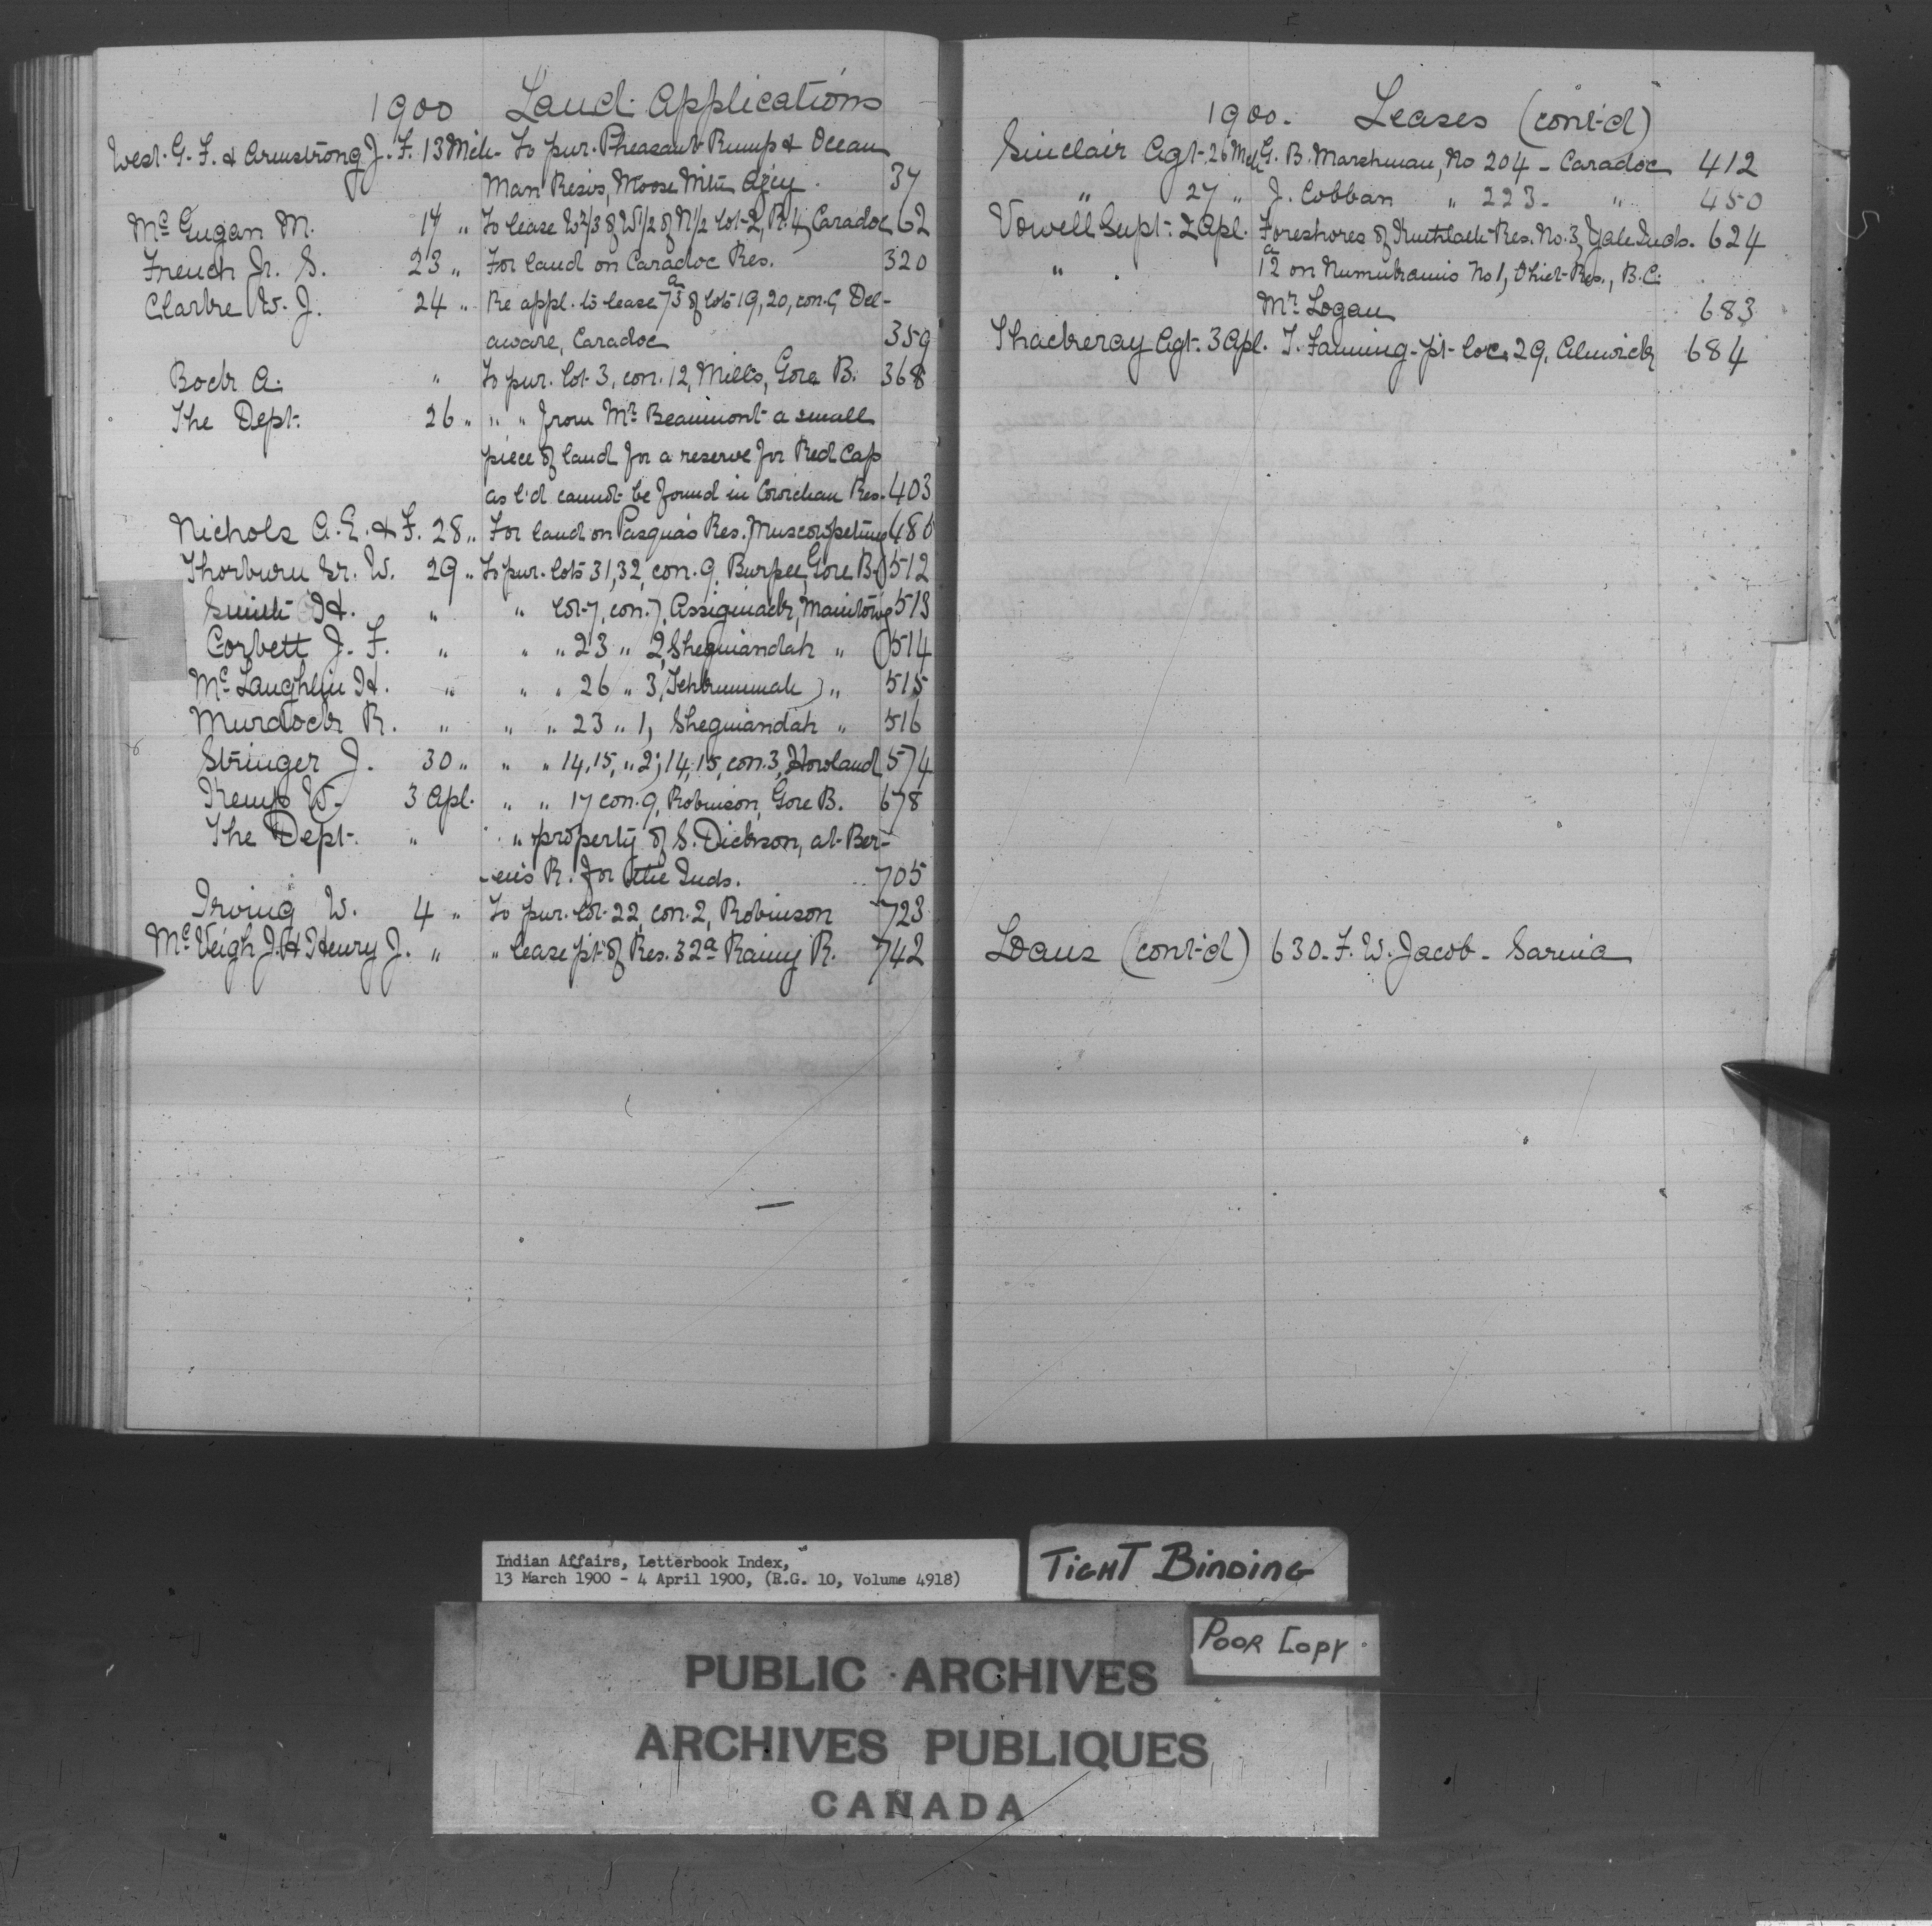 1900 Land Applications
West G. F. & Armstrong J. F. 13 Mch. To pur. Pheasant Rump & Ocean
Man Resvs, Moose Mtn Agcy. 37
McGugan M. 14 " To lease W 2/3 of W 1/2 of N 1/2 lot 2, R. 4, Caradoc 62
French Jr. S. 23 " For land on Caradoc Res. 320
Clarke W. J. 24 " Re appl. to lease 75 a of lots 19, 20, con. G, Del-
aware, Caradoc 359
Bock A. " To pur. lot 3, con. 12, Mills, Gore B. 368
The Dept. 26 " " " from Mr Beaumont a small
piece of land for a reserve for Red Cap
as l'd cannot be found in Cowichan Res. 403
Nichols A. E. & F. 28 " For land on Pasqua's Res. Muscowpetung 486
Thorburn Sr. W. 29 " To pur. lots 31, 32, con. 9, Burpee, Gore B. 512
Smith H. " " lot 7, con. 7, Assiginack, Manitowg 513
Corbett J. F. " " " 23 " 2, Sheguiandah " 514
McLaughlin H. " " " 26 " 3, Tehkummah, " 515
Murdock R. " " " 23 " 1, Sheguiandah " 516
Stringer J. 30 " " " 14, 15, " 2; 14, 15, con. 3, Howland 574
Kemp W. 3 Apl. " " 17 con. 9, Robinson, Gore B. 678
The Dept. " " property of S. Dickson, at Ber-
-en's R. for the Inds. 705
Irving W. 4 " To pur. lot 22, con. 2, Robinson 723
McVeigh J. H Henry J. " " lease pt of Res. 32a Rainy R. 742
1900. Leases (cont'd)
Sinclair Agt. 26 Mch G. B. Marshman, No 204 - Caradoc 412
" 27 " J. Cobban " 223. " 450
Vowell Supt. 2 Apl. Foreshores of Res. No. 3, Yale Inds. 624
" 12 a on No 1, Ohiet Res., B.C.
Mr Logan 683
Thackeray Agt. 3 Apl. T. Fanning - pt loc. 29, Alnwick 684
Loans (cont'd) 630. F. W. Jacob - Sarnia
Indian Affairs, Letterbook Index,
13 March 1900 - 4 April 1900, (R.G. 10, Volume 4918)
TIGHT BINDING
POOR COPY
PUBLIC ARCHIVES
ARCHIVES PUBLIQUES
CANADA